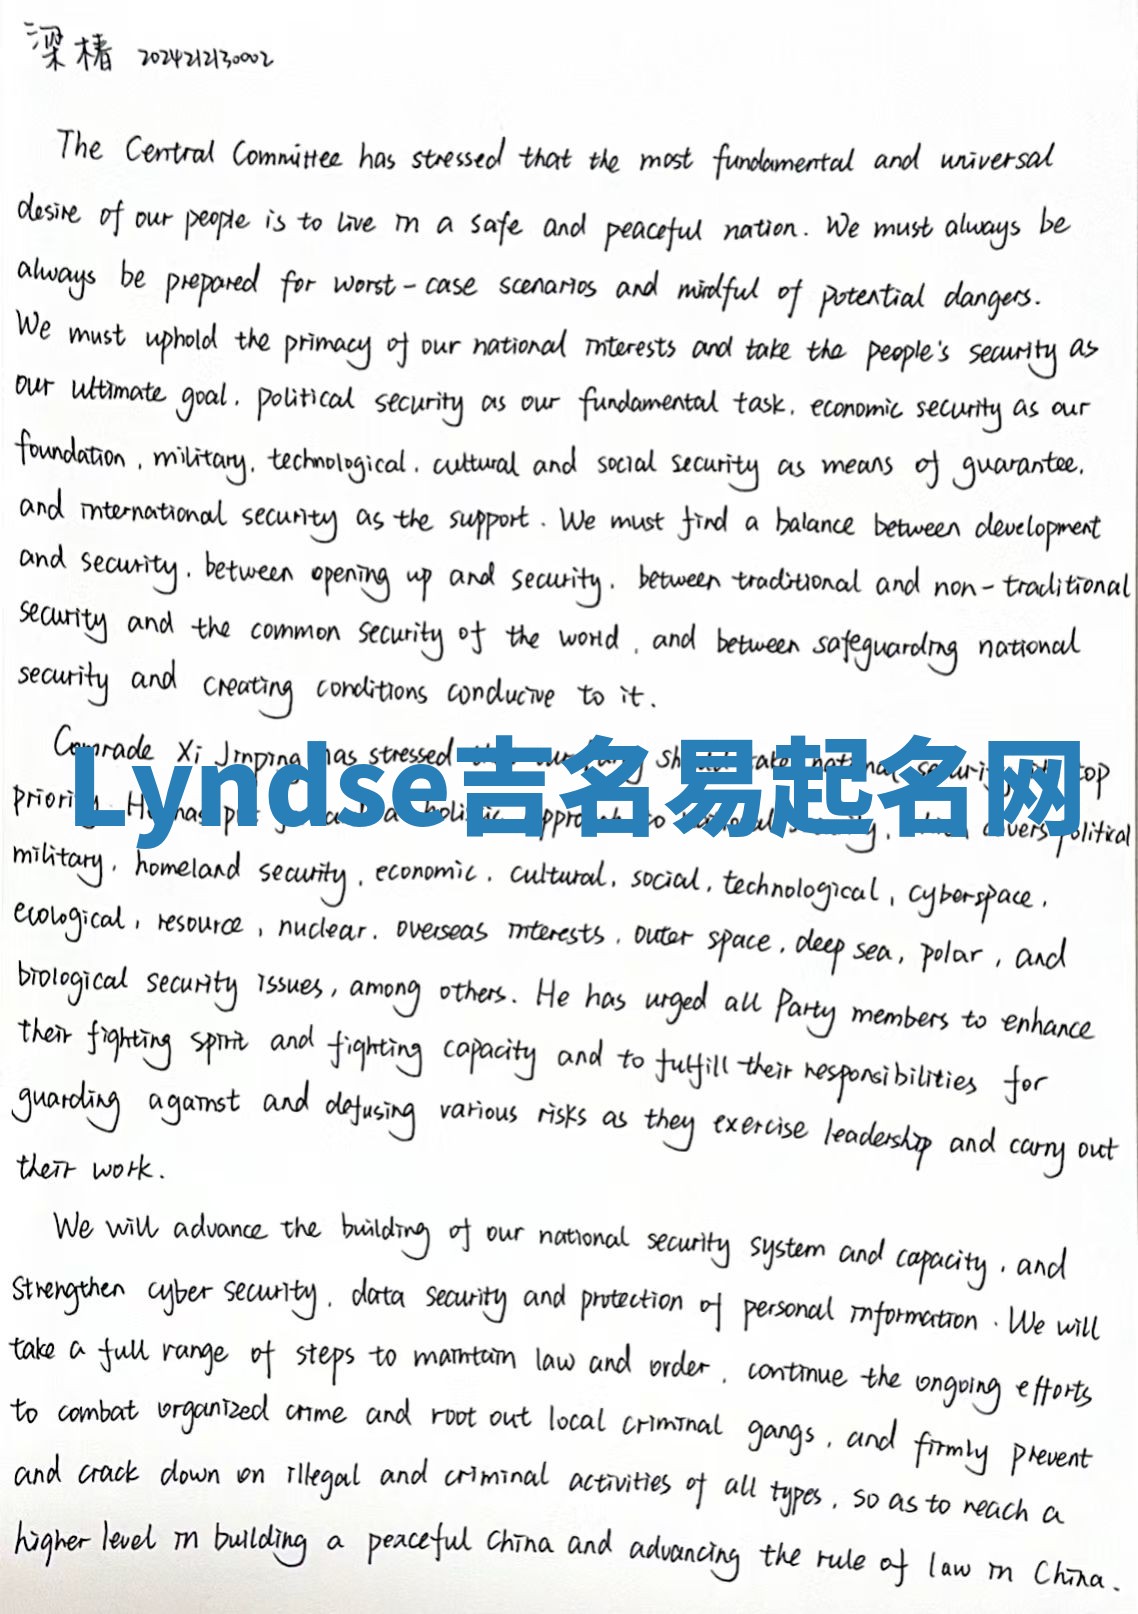 梁椿 2024212130002
The Central Committee has stressed that the most fundamental and universal
desire of our people is to live in a safe and peaceful nation. We must always be
always be prepared for worst-case scenarios and mindful of potential dangers.
We must uphold the primacy of our national interests and take the people's security as
our ultimate goal, political security as our fundamental task, economic security as our
foundation, military, technological, cultural and social security as means of guarantee,
and international security as the support. We must find a balance between development
and security, between opening up and security, between traditional and non-traditional
security and the common security of the world, and between safeguarding national
security and creating conditions conducive to it.
Comrade Xi Jinping has stressed top
Lyndse吉名易起名网
political
military, homeland security, economic, cultural, social, technological, cyberspace,
ecological, resource, nuclear, overseas interests, outer space, deep sea, polar, and
biological security issues, among others. He has urged all Party members to enhance
their fighting spirit and fighting capacity and to fulfill their responsibilities for
guarding against and defusing various risks as they exercise leadership and carry out
their work.
We will advance the building of our national security system and capacity, and
strengthen cyber security, data security and protection of personal information. We will
take a full range of steps to maintain law and order, continue the ongoing efforts
to combat organized crime and root out local criminal gangs, and firmly prevent
and crack down on illegal and criminal activities of all types, so as to reach a
higher level in building a peaceful China and advancing the rule of law in China.